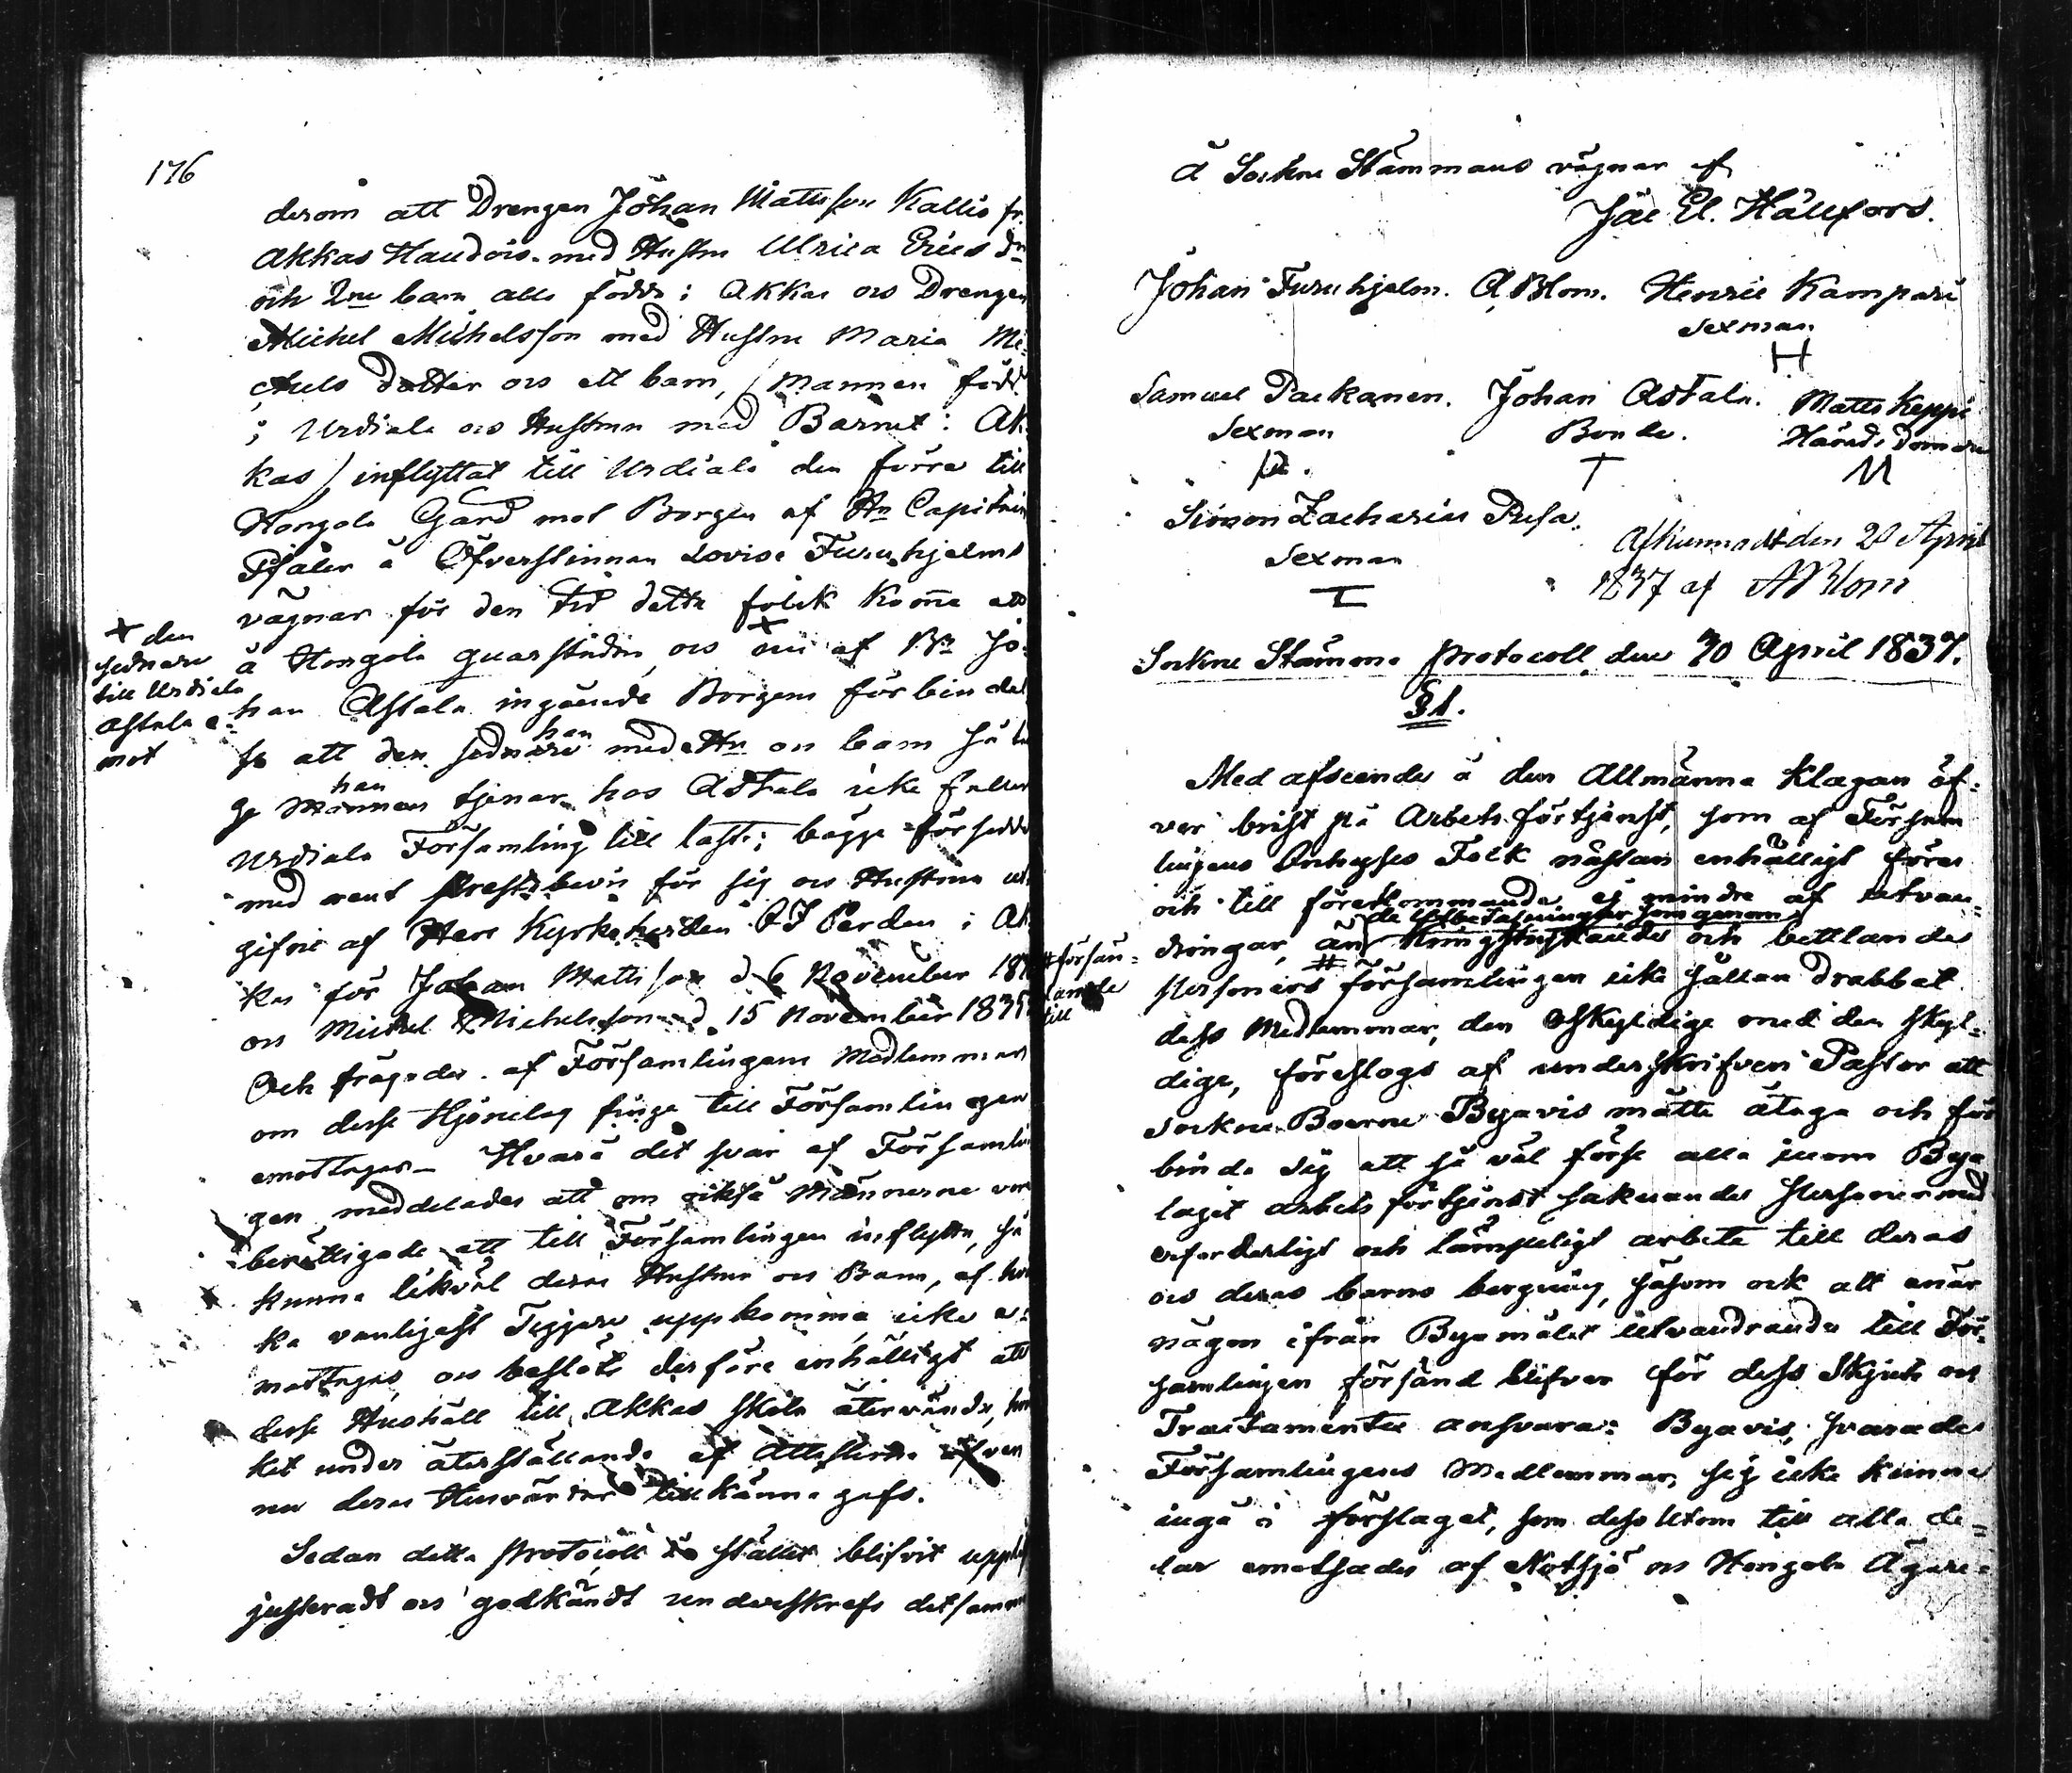 176
derom att Drengen Johan Mattsson Kallio fr.
Akkas Haudois med Hustru Ulrica Erics dr
och 2ne barn alla födde i Akkas och Drengen
Michel Michelsson med Hustru Maria Mi-
chels dotter och ett barn, /mannen född
i Urdiala och Hustrun med Barnet i Ak-
kas/ inflyttat till Urdiala den förra till
Hongola Gård mot Borgen af Hn Capitain
å Öfverstinnan Lovisa Furuhjelms
vägnar för den tid detta folk komme att
å Hongola qvarstadna, och af Bn Jo-
han Astala ingående Borgens förbindel
se att den sednare med Hu och barn så län
han
ge han tjenar hos Astala icke faller
Urdiala Församling till last; bägge försedde
med rent Prestbevis för sig och Hustrun ut-
gifne af Herr Kyrkoherden Perden i Ak
kas för Johan Mattsson d 6 November 183
och Michel Michelsson d. 15 November 183
Och frågades af Församlingens Medlemmar
om desse Hjonelag finge till Församlingen
emottagas – Hvarå det svar af Församlin
gen meddelades att om också Männerne voro
berättigade att till Församlingen inflytta, så
kunna likväl deras Hustrur och Barn, af hvil
ka vanligast Tiggare uppkomma, icke e-
mottagas, och beslöts derföre enhälligt att
desse Hushåll till Akkas skola återvända, hvil
ket under återställande af Attesterne äfven
nu deras Husvärdar tillkänna gafs.
Sedan detta Protocoll i stället blifvit uppläst
justeradt och godkändt underskrefs detsamma
+ den
sednare
till Urdiala
Astala e-
mot
å Sockne Stämmans vägnar af
Jac El. Hällfors.
Johan Furuhjelm. A. Blom. Henric Kampari
Sexman
H
Samuel Packanen. Johan Astala. Matts Keppi
Sexman Bonde. Härads Domare
P. T M
Simon Zacharias Pusa.
Sexman
I
Afkunnadt den 20 April
1837 af A Blom
Sockne Stämmo Protocoll den 30 April 1837.
§ 1.
Med afseende å den Allmänna Klagan öf-
ver brist på Arbetsförtjenst, som af Försam
lingens Inhyses Folk nästan enhälligt föres
och till förekommande ej mindre af utvan-
de Utbetalningar som genom
dringar, än Kringstrykande och bettlande
# försän-
lande
till
personers församlingen icke sällan drabbat
dess Medlemmar, den Oskyldige med den skyl-
dige, föreslogs af underskrifven Pastor att
Sockne Boerne Byavis måtte åtaga och för
binda sig att så väl förse alla inom Bya
laget arbets förtjenst saknande personer med
erforderligt och lämpeligt arbete till deras
och deras barns bergning, såsom ock att när
någon ifrån Byamålet utvandrande till För-
samlingen försänd blifver för dess Skjuts och
Tractamente ansvara: Byavis, svarades
Församlingens Medlemmar, sig icke kunna
ingå i förslaget, som dessutom till alla de-
lar emotsades af Notsjö och Hongola Ägare-